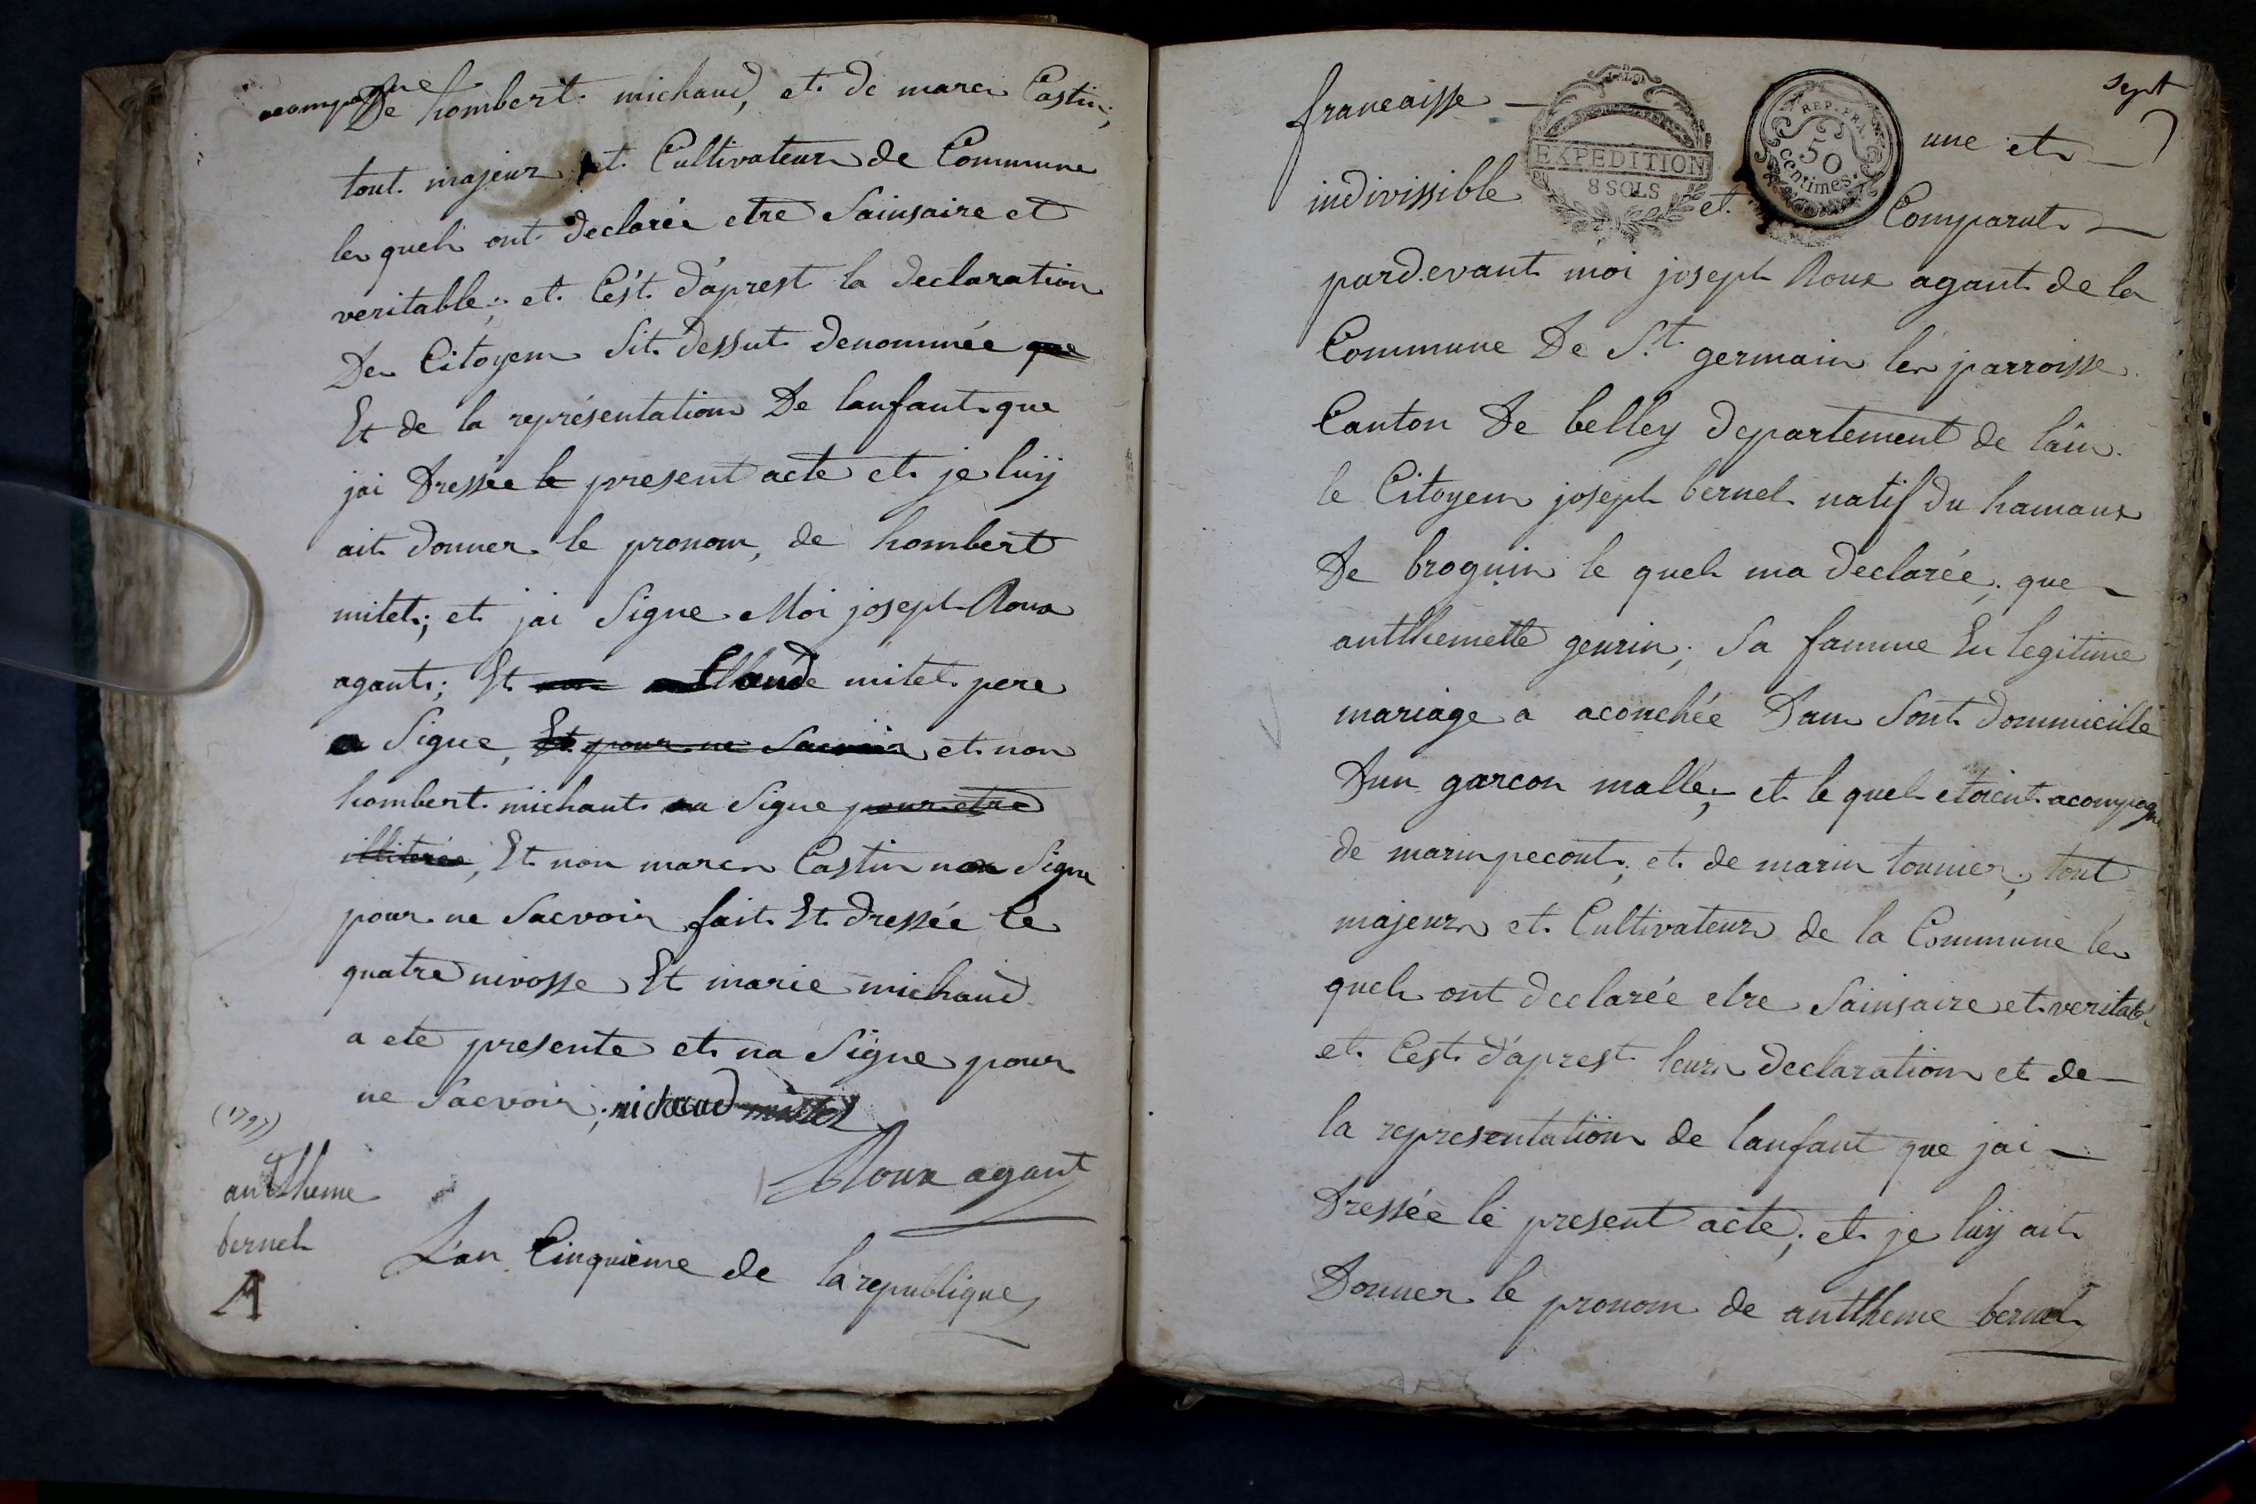 acompagne
De hombert michaud, et de marc Castin;
tout majeur et Cultivateur de Commune
les quels ont declarée etre Sainsaire et
veritable; et C'est d'aprest la declaration
Des Citoyens Sit dessut denommée que
Et de la représentation De lanfant que
jai Dressée le present acte et je luÿ
ait donner le pronom, de hombert
mitet; et jai Signe Moi joseph Roux
agant; Et Claude mitet pere
a Signe, Et pour ne Sacvoir et non
hombert michaut Signe pour etre
illiterée, Et non marc Castin Signe
pour ne Sacvoir fait Et dressée le
quatre nivosse Et marie michaud
a ete presente et na Signe pour
ne Sacvoir; michaud mitet
Roux agant
(1797)
antthheme
bernel
A
L'an Cinquieme de la republique
sept
francaisse — une et —
EXPEDITION
8 SOLS
REP. FRA.
50
centimes.
indivissible et Comparut —
pardevant moi joseph Roux agant de la
Commune De St. germain les parroisse
Canton De belley departement de lain.
le Citoyen joseph bernel natif du hamaux
De brognin le quel ma declarée; que —
antthemette geurin; Sa famme En legitime
mariage a acouchée Dans Sont dommicille
Dun garcon malle; et le quel etoient acompagne
de marin pecout; et de marin tournier; tout
majeur et Cultivateur de la Commune les
quels ont declarée etre Sainsaire et veritable
et Cest d'aprest leurs declaration et de —
la representation de lanfant que jai —
Dressée le present acte; et je luÿ ait
Donner le pronom de anttheme bernel